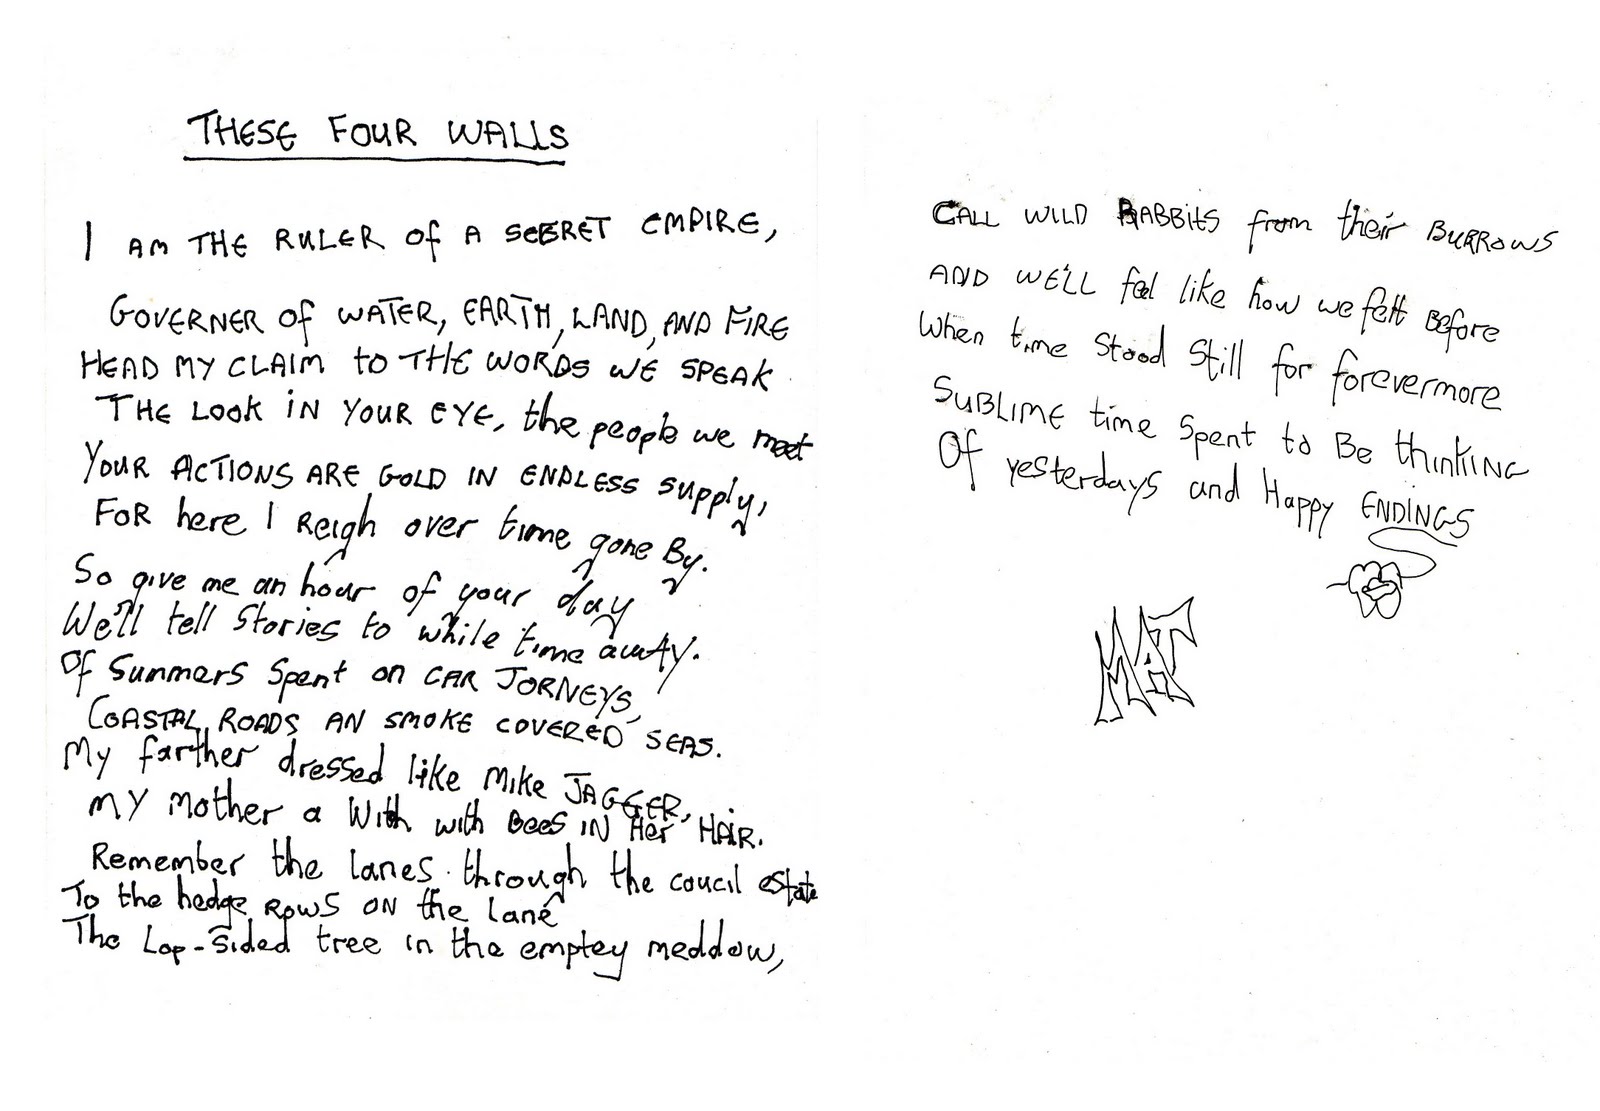 THESE FOUR WALLS
I AM THE RULER of A SECRET EMPIRE,
GOVERNER of WATER, EARTH, LAND, AND FIRE
HEAD MY CLAIM to THE WORDS WE SPEAK
THE LOOK iN YOUR EYE, the people we meet
YOUR ACTIONS ARE GOLD IN ENDLESS supply,
FOR here I Reigh over time gone By.
So give me an hour of your day
We'll tell Stories to while time awAy.
Of Summers Spent on CAR JORNEYS,
COASTAL ROADS AN SMOKE COVERED SEAS.
My farther dressed like Mike JAGGER,
MY Mother a With with Bees IN Her HAIR.
Remember the lanes through the coucil estate
To the hedge ROWS ON the lane
The Lop-Sided tree in the emptey meddow,
CALL WILD RABBitS from their BURROWS
AND WE'LL feel like how we felt Before
When time Stood Still for forevermore
SUBLIME time Spent to Be thinKING
Of yesterdays and Happy ENDINGS
MAT